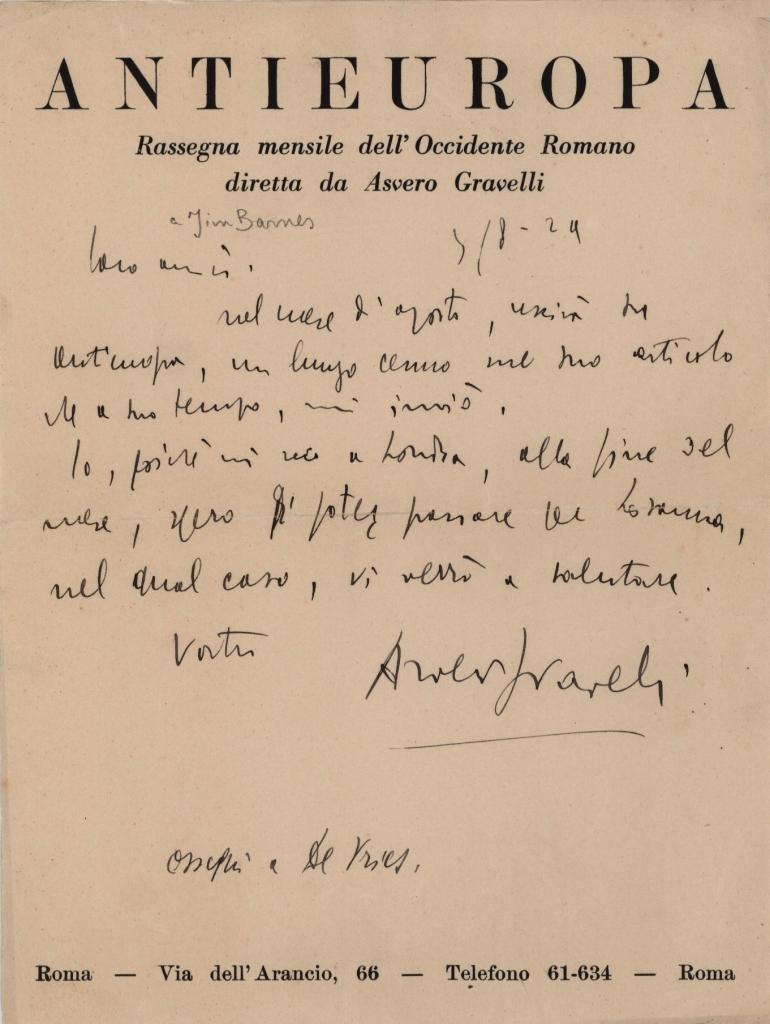 ANTIEUROPA
Rassegna mensile dell'Occidente Romano
diretta da Asvero Gravelli
a Jim Barnes
/8-29
Caro amico.
nel mese d'agosto, uscirà su
Antieuropa, un lungo cenno sul suo articolo
che a suo tempo, mi inviò.
Io, poiché mi reco a Londra, alla fine del
mese, spero di poter passare per Losanna,
nel qual caso, vi verrò a salutare.
Vostro
Asvero Gravelli
Ossequi a De Vries.
Roma — Via dell'Arancio, 66 — Telefono 61-634 — Roma